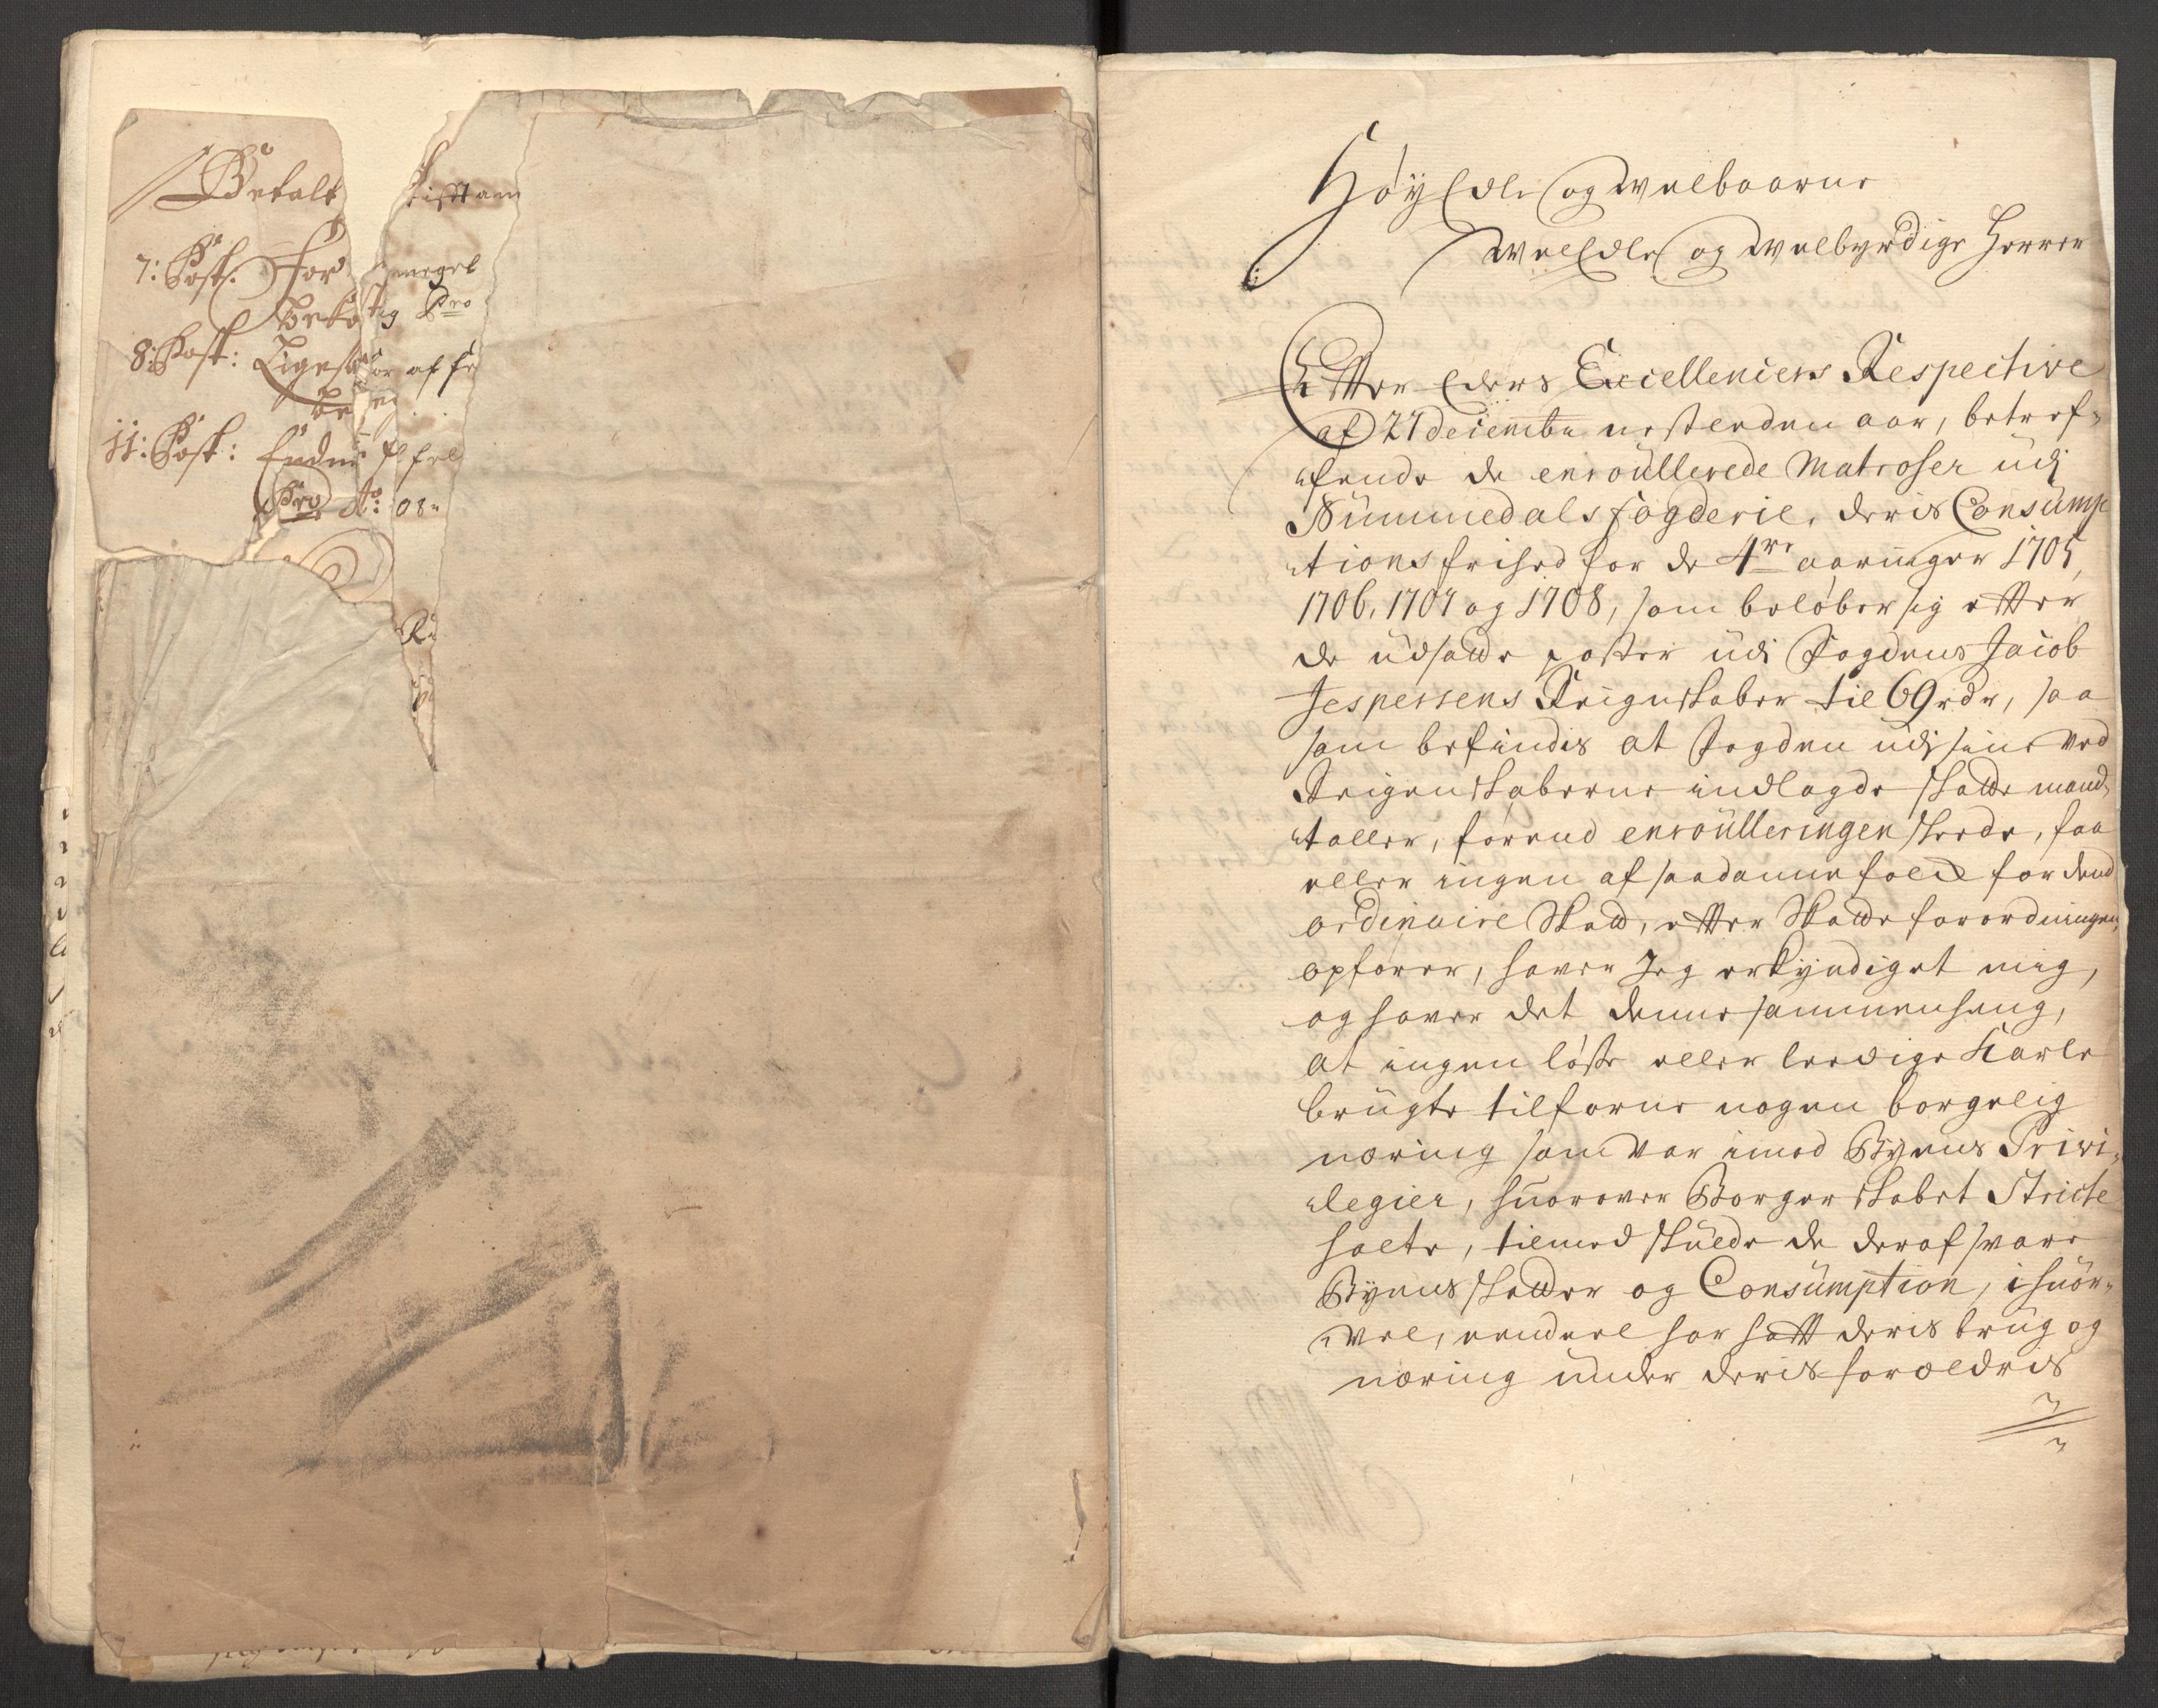 Betalt
7: Post. For
beko stig Pro
8: Post: Ligesaa for af
11: Post: Endnu
Pro Ao: 08"
Høy Edle og welbaarne
Well Edle og welbyrdige Herrer
Efter Eders Excellencers Respective
af 27 decembr nestenden aar, betref-
fende de enroullerede Matroser udj
Nummedals fogderie, deris Consump
tions frihed for de 4re aaringer 1705,
1706, 1707 og 1708, som beløber sig efter
de udsatte poster udi Fogdens Jacob
Jespersens Reigenskaber til 69 rdr, saa
som befindis at Fogden udj sine ved
Reigenskaberne indlagde skatte mand
taller, førend enroulleringen skeede, faa
eller ingen af saadanne folck for dend
ordinaire Skatt, efter Skatte forordningen,
opfører, haver Jeg erkyndiget mig,
og haver det denne sammenheng,
at ingen løse eller leedige Karle
brugte tilforne nogen borgelig
næring som var imod Byens Privi-
legier, huorover Borgerskabet Stricte
holte, tilmed skulde de deraf svare
Byens skatter og Consumption, ihuor-
vel, eendeel har hatt deris brug og
næring under deris forældris